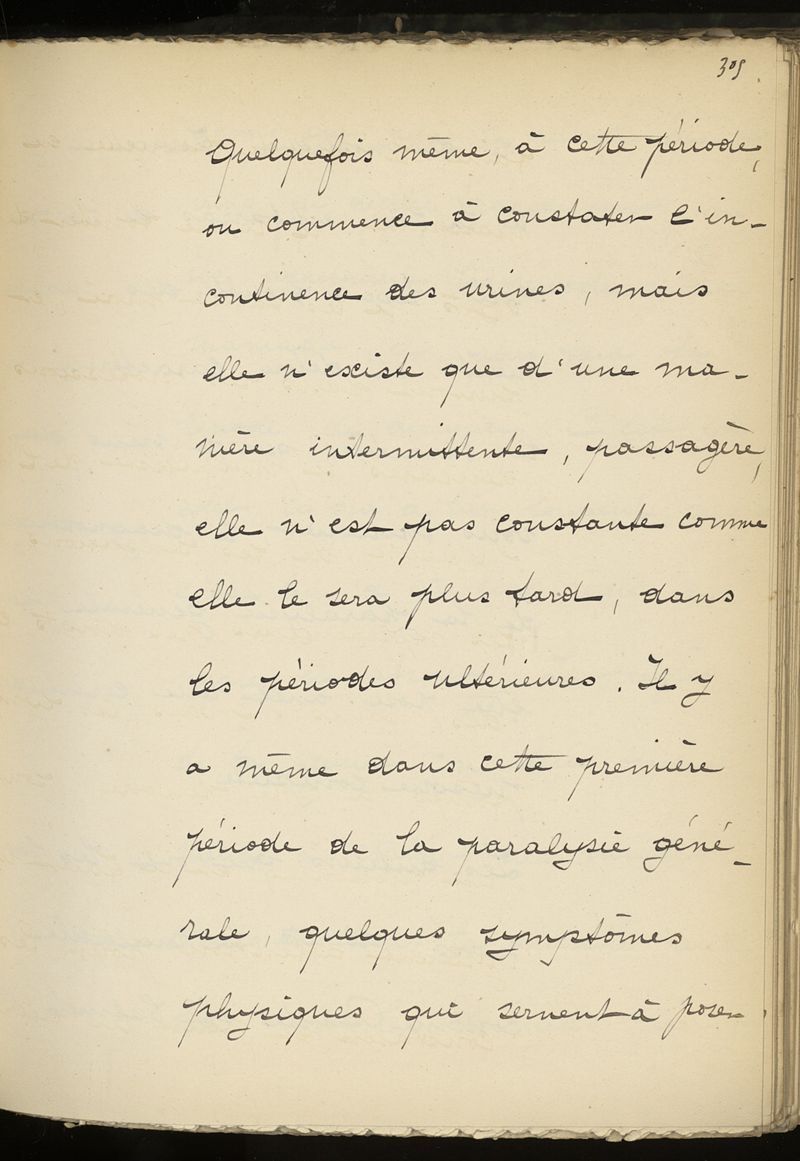 305
Quelquefois même, à cette période,
on commence à constater l'in-
continence des urines, mais
elle n'existe que d'une ma-
nière intermittente, passagère,
elle n'est pas constante comme
elle le sera plus tard, dans
les périodes ultérieures. Il y
a même dans cette première
période de la paralysie géné-
rale, quelques symptômes
physiques qui servent à poser